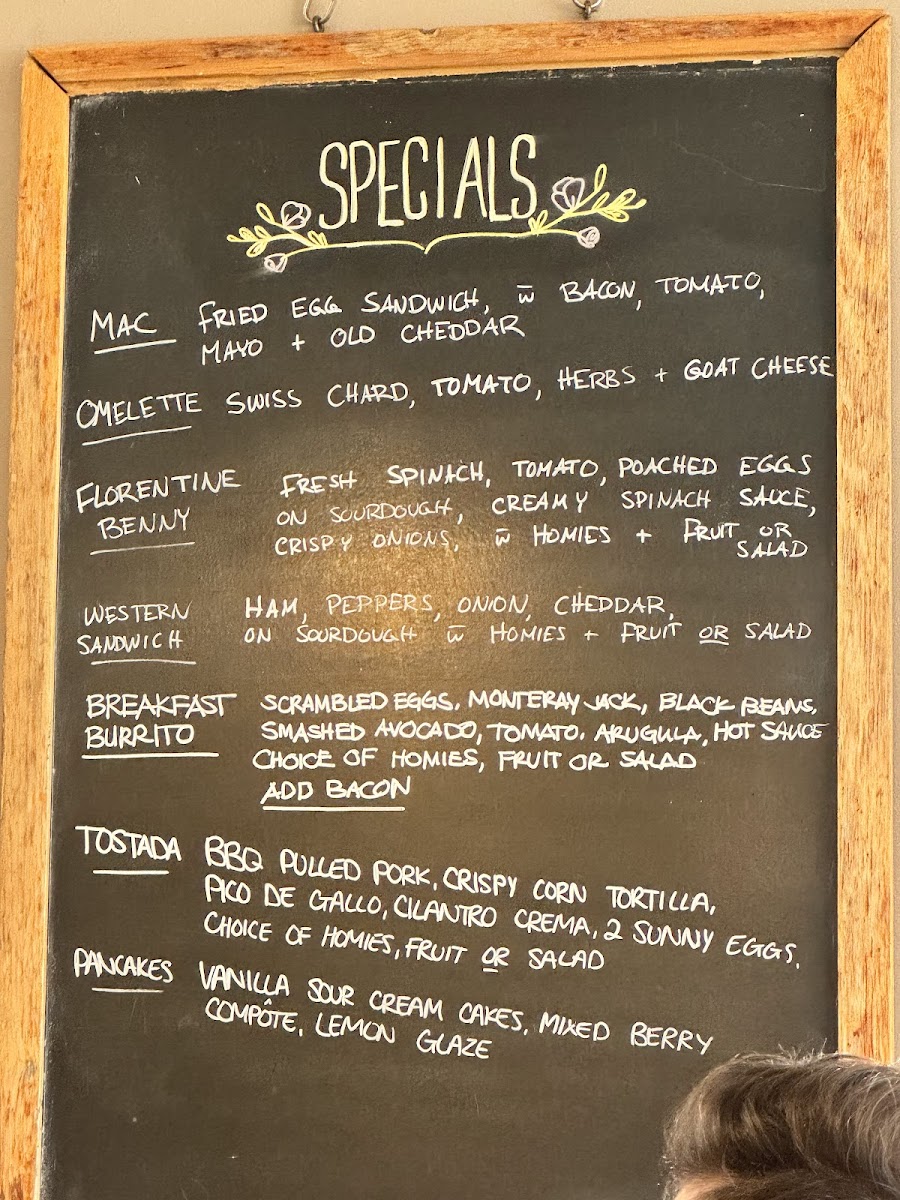 SPECIALS
MAC FRIED EGG SANDWICH, w̅ BACON, TOMATO,
MAYO + OLD CHEDDAR
OMELETTE SWISS CHARD, TOMATO, HERBS + GOAT CHEESE
FLORENTINE FRESH SPINACH, TOMATO, POACHED EGGS
BENNY ON SOURDOUGH, CREAMY SPINACH SAUCE,
CRISPY ONIONS, w̅ HOMIES + FRUIT OR
SALAD
WESTERN HAM, PEPPERS, ONION, CHEDDAR,
SANDWICH ON SOURDOUGH w̅ HOMIES + FRUIT OR SALAD
BREAKFAST SCRAMBLED EGGS, MONTERAY JACK, BLACK BEANS,
BURRITO SMASHED AVOCADO, TOMATO, ARUGULA, HOT SAUCE
CHOICE OF HOMIES, FRUIT OR SALAD
ADD BACON
TOSTADA BBQ PULLED PORK, CRISPY CORN TORTILLA,
PICO DE GALLO, CILANTRO CREMA, 2 SUNNY EGGS,
CHOICE OF HOMIES, FRUIT OR SALAD
PANCAKES VANILLA SOUR CREAM CAKES, MIXED BERRY
COMPÔTE, LEMON GLAZE